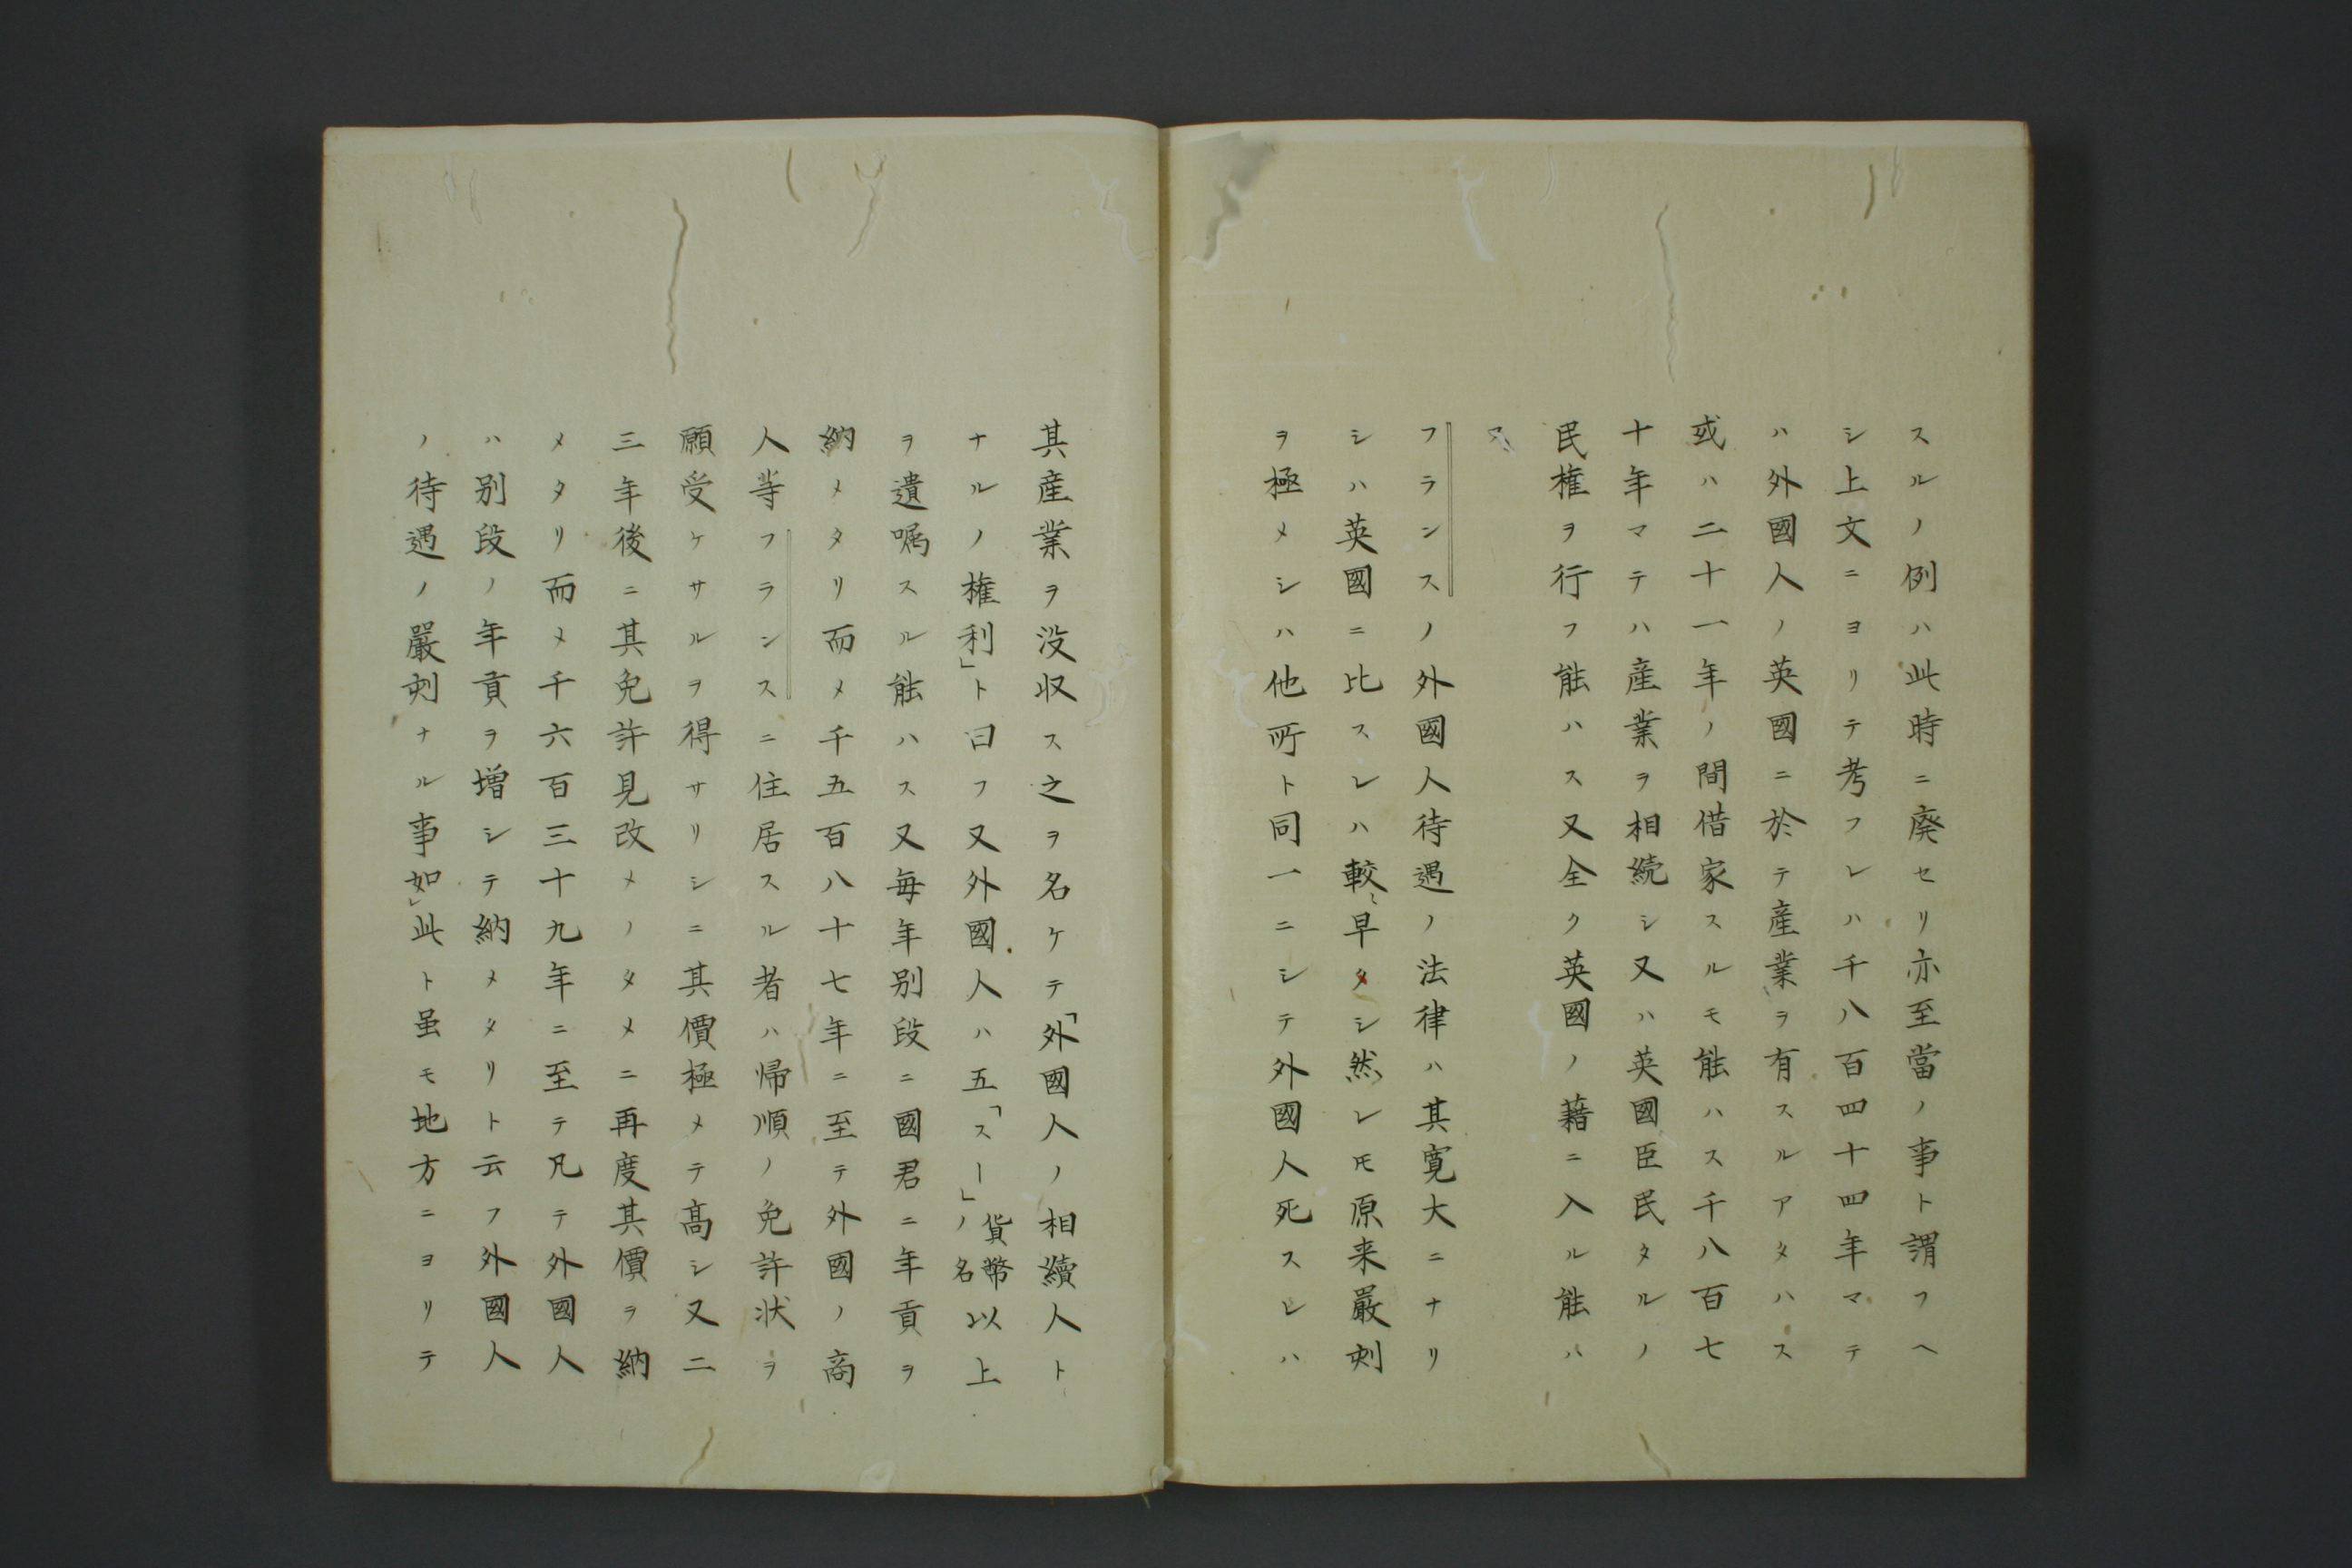 スルノ例ハ此時ニ廃セリ亦至當ノ事ト謂フヘ
シ上文ニヨリテ考フレハ千八百四十四年マテ
ハ外國人ノ英國ニ於テ産業ヲ有スルアタハス
或ハ二十一年ノ間借家スルモ能ハス千八百七
十年マテハ産業ヲ相続シ又ハ英國臣民タルノ
民権ヲ行フ能ハス又全ク英國ノ藉ニ入ル能ハ
ス
フランスノ外國人待遇ノ法律ハ其寛大ニナリ
シハ英國ニ比スレハ較〻早タシ然レ𪜈原来嚴刻
ヲ極メシハ他所ト同一ニシテ外國人死スレハ
其産業ヲ没収ス之ヲ名ケテ「外國人ノ相續人ト
ナルノ権利」ト曰フ又外國人ハ五「スー」貨幣ノ名以上
ヲ遺嘱スル能ハス又毎年別段ニ國君ニ年貢ヲ
納メタリ而メ千五百八十七年ニ至テ外國ノ商
人等フランスニ住居スル者ハ帰順ノ免許状ヲ
願受ケサルヲ得サリシニ其價極メテ髙シ又二
三年後ニ其免許見改メノタメニ再度其價ヲ納
メタリ而メ千六百三十九年ニ至テ凡テ外國人
ハ別段ノ年貢ヲ増シテ納メタリト云フ外國人
ノ待遇ノ嚴刻ナル事如レ此ト虽モ地方ニヨリテ